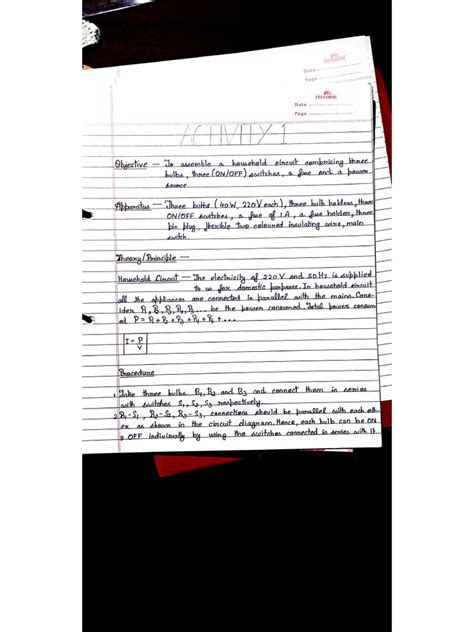 Date
Page
Date
Page
ACTIVITY-1
Objective — To assemble a household circuit comprising three
bulbs, three (ON/OFF) switches, a fuse and a power
source.
Apparatus — Three bulbs (40W, 220V each), three bulb holders, three
ON/OFF switches, a fuse of 1A, a fuse holder, three
pin plug, flexible two coloured insulating wire, main
switch.
Theory/Principle —
Household Circuit — The electricity of 220V and 50Hz is supplied
to us for domestic purposes. In household circuit
all the appliances are connected in parallel with the mains. Cons-
ider be the power consumed. Total power consum
ed P =
I = P/V
Procedure
1. Take three bulbs B1, B2 and B3 and connect them in series
with switches S1, S2, S3 respectively.
2. B1-S1, B2-S2, B3-S3, connections should be parallel with each oth
er as shown in the circuit diagram. Hence, each bulb can be ON
& OFF individually by using the switches connected in series with it